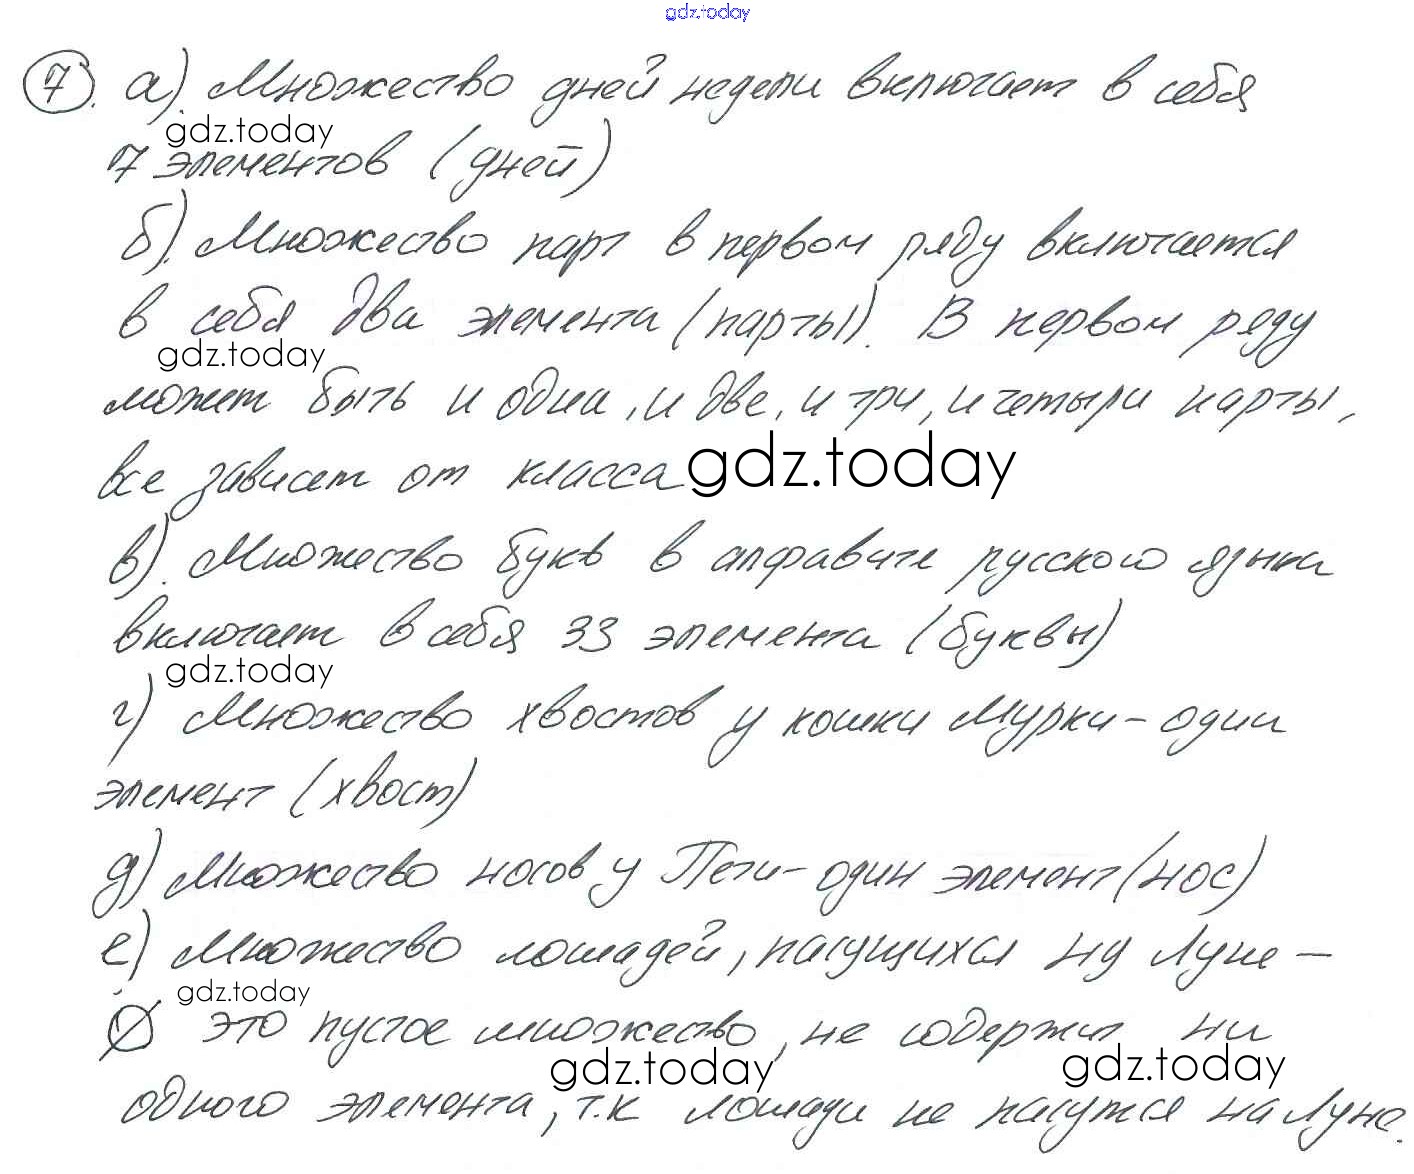 gdz.today
7. а). Множество дней недели включает в себя
gdz.today
7 элементов (дней)
б). Множество парт в первом ряду включается
в себя два элемента (парты). В первом ряду
gdz.today
может быть и одна, и две, и три, и четыри парты,
все зависет от класса gdz.today
в). Множество букв в алфавите русского языка
включает в себя 33 элемента (буквы)
gdz.today
г) Множество хвостов у кошки Мурки - один
элемент (хвост)
д) Множество носов у Пети - один элемент (нос)
е) Множество лошадей, пасущихся на Луне -
gdz.today
∅ это пустое множество, не содержит ни
gdz.today gdz.today
одного элемента, т.к лошади не пасутся на Луне.